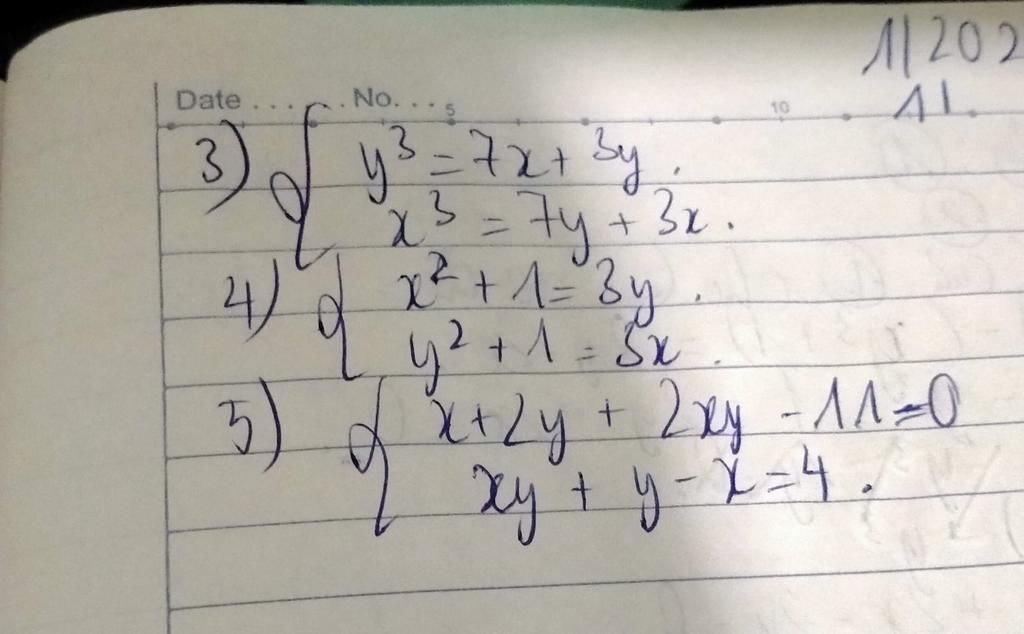 1/202
11.
Date ........ No. ... 5 10
3) { y³ = 7x + 3y.
x³ = 7y + 3x.
4) { x² + 1 = 3y.
y² + 1 = 3x.
5) { x + 2y + 2xy - 11 = 0
xy + y - x = 4.